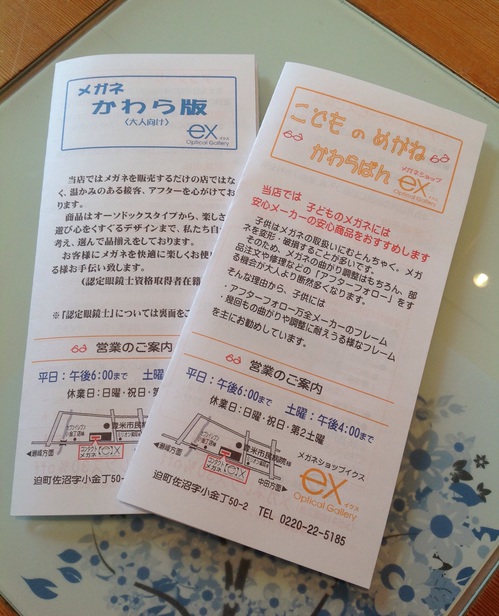 メガネ
かわら版
〈大人向け〉
ex イクス
Optical Gallery
当店ではメガネを販売するだけの店ではな
く、温かみのある接客、アフターを心がけており
ます。
商品はオーソドックスタイプから、楽しさ
遊び心をくすぐるデザインまで、私たち自
考え、選んで品揃えをしております。
お客様にメガネを快適に楽しくお使
る様お手伝い致します。
（認定眼鏡士資格取得者在籍
※「認定眼鏡士」については裏面をご
営業のご案内
平日：午後6:00まで 土曜：午
休業日：日曜・祝日・第
登米市民病院
コンタクト
メガネ ex
迫町佐沼字小金丁50-
こども の めがね
かわらばん
メガネショップ
ex イクス
Optical Gallery
当店では 子どものメガネには
安心メーカーの安心商品をおすすめします
子供はメガネの取扱いにむとんちゃく、メガ
ネを変形・破損することが多いです。
そのため、メガネの曲がり調整はもちろん、部
品注文や修理などの「アフターフォロー」をす
る機会が大人より断然多くなります。
そんな理由から、子供には
・アフターフォロー万全メーカーのフレーム
・幾回もの曲がりや調整に耐えうる様なフレーム
を主にお勧めしています。
営業のご案内
平日：午後6:00まで 土曜：午後4:00まで
休業日：日曜・祝日・第2土曜
登米市民病院
コンタクト
メガネ ex
中田方面
メガネショップイクス
ex イクス
Optical Gallery
迫町佐沼字小金丁50-2 TEL 0220-22-5185